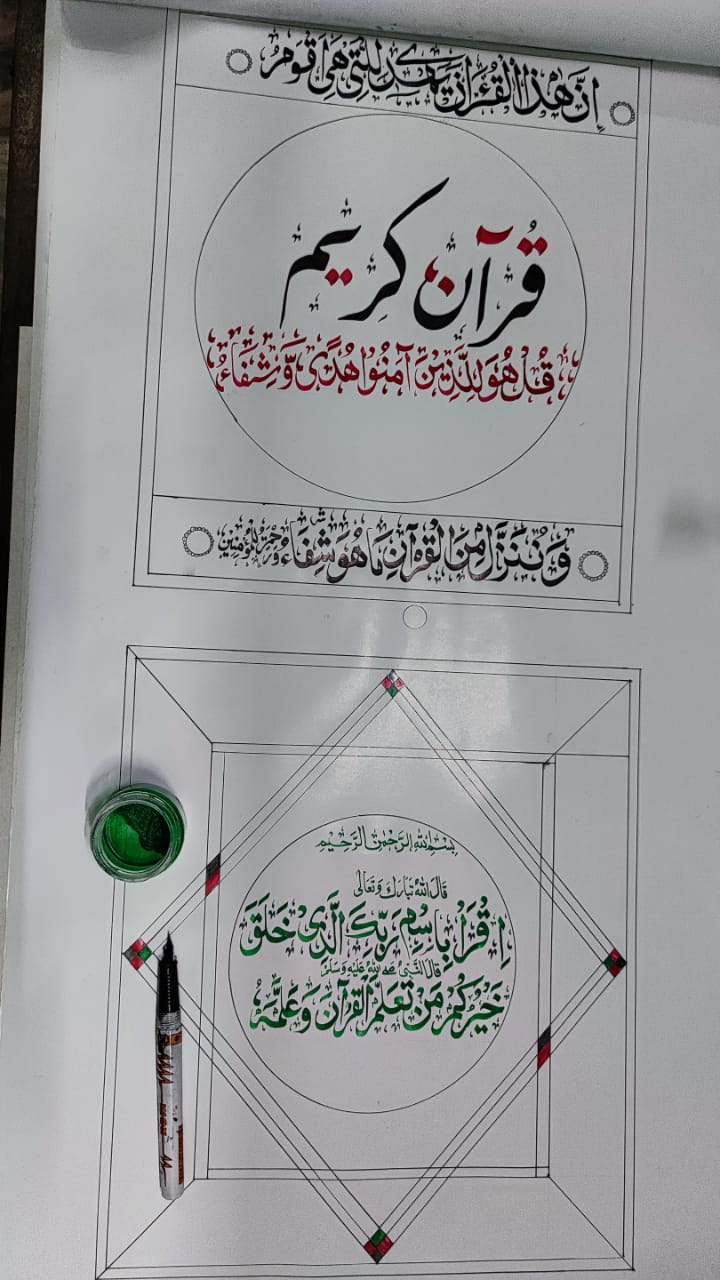 إِنَّ هٰذَا الْقُرْاٰنَ يَهْدِي لِلَّتِي هِيَ أَقْوَمُ
قُرآن کریم
قُلْ هُوَ لِلَّذِيْنَ آمَنُوا هُدًى وَّشِفَاءٌ
وَنُنَزِّلُ مِنَ الْقُرْآنِ مَا هُوَ شِفَاءٌ وَّرَحْمَةٌ لِلْمُؤْمِنِيْنَ
بِسْمِ اللهِ الرَّحْمٰنِ الرَّحِيْمِ
قَالَ اللهُ تَبَارَكَ وَتَعَالٰى
اِقْرَاْ بِاسْمِ رَبِّكَ الَّذِىْ خَلَقَ
قَالَ النَّبِىُّ صَلَّى اللهُ عَلَيْهِ وَسَلَّمَ
خَيْرُكُمْ مَنْ تَعَلَّمَ الْقُرْآنَ وَعَلَّمَهُ